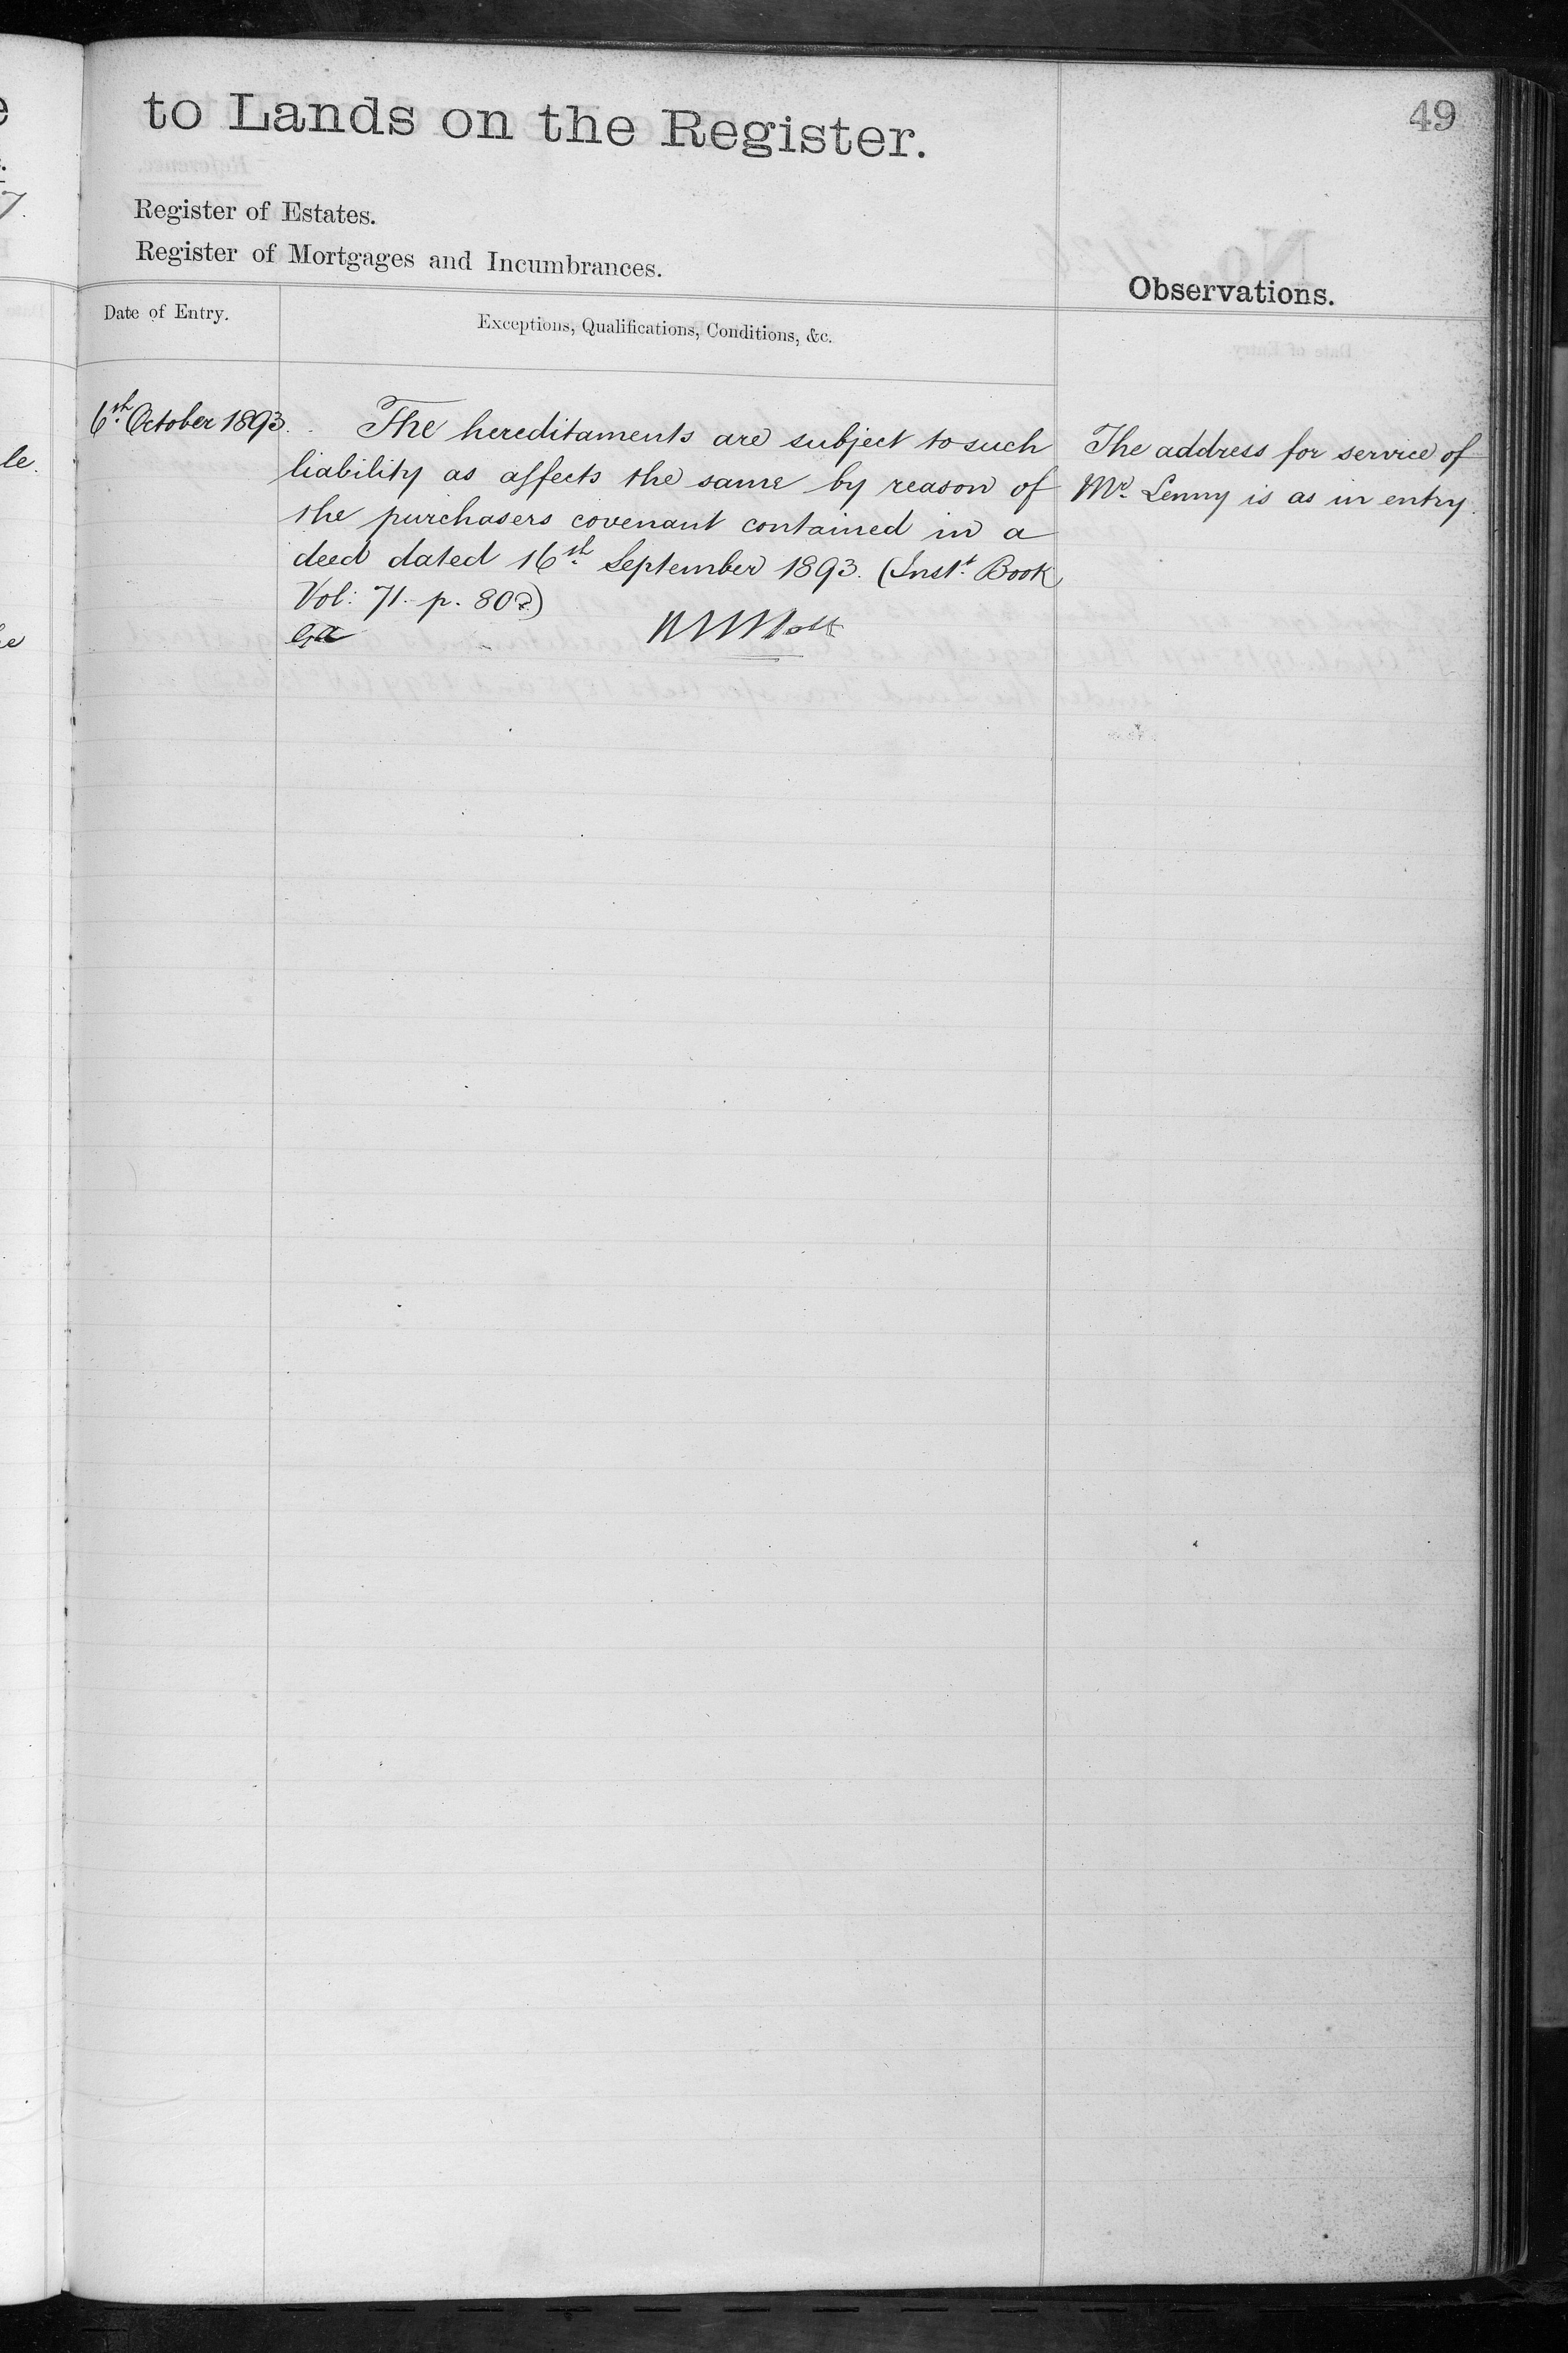 to Lands on the Register.
49
Register of Estates.
Register of Mortgages and Incumbrances.
Observations.
Date of Entry.
Exceptions, Qualifications, Conditions, &c.
6th October 1893.
The hereditaments are subject to such
liability as affects the same by reason of
the purchasers covenant contained in a
deed dated 16th September 1893. (Inst. Book
Vol: 71. p. 802)
The address for service of
Mr. Lenny is as in entry.